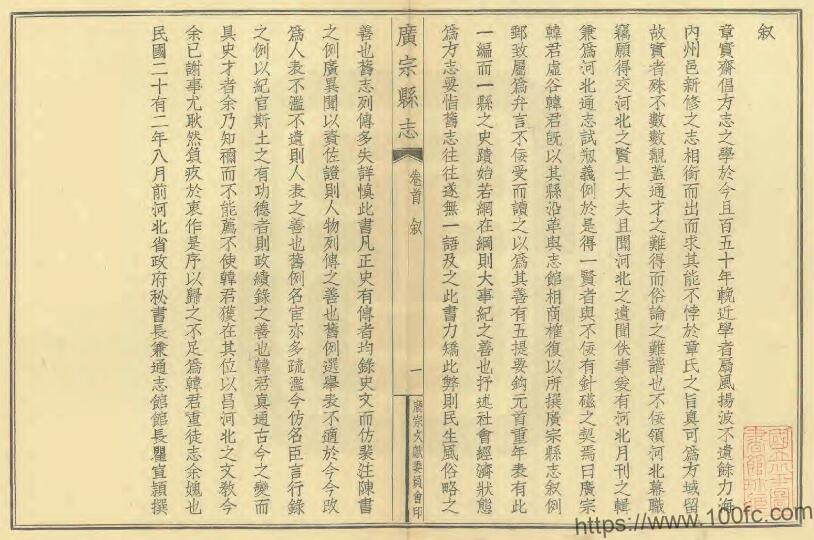 叙
章實齋倡方志之學於今且百五十年輓近學者扇風揚波不遺餘力海
內州邑新修之志相銜而出而求其能不悖於章氏之旨真可爲方域留
故實者殊不數數覯蓋通才之難得而俗論之難諧也不佞領河北幕職
竊願得交河北之賢士大夫且聞河北之遺聞佚事爰有河北月刊之輯
兼爲河北通志試擬義例於是得一賢者與不佞有針磁之契焉曰廣宗
韓君虛谷韓君旣以其縣沿革與志館相商榷復以所撰廣宗縣志叙例
郵致屬爲弁言不佞受而讀之以爲其善有五提要鈎元首重年表有此
一編而一縣之史蹟始若網在綱則大事紀之善也抒述社會經濟狀態
爲方志要恉舊志往往遂無一語及之此書力矯此弊則民生風俗略之
廣宗縣志
卷首 叙
一
廣宗文獻委員會印
善也舊志列傳多失詳慎此書凡正史有傳者均錄史文而仿裴注陳書
之例廣異聞以資佐證則人物列傳之善也舊例選舉表不適於今今改
爲人表不濫不遺則人表之善也舊例名宦亦多疏濫今仿名臣言行錄
之例以紀官斯土之有功德者則政績錄之善也韓君真通古今之變而
具史才者余乃知禰而不能薦不使韓君獲在其位以昌河北之文敎今
余已謝事尤耿然負疚於衷作是序以歸之不足爲韓君重徒志余媿也
民國二十有二年八月前河北省政府秘書長兼通志館館長瞿宣頴撰
https://www.100fc.com